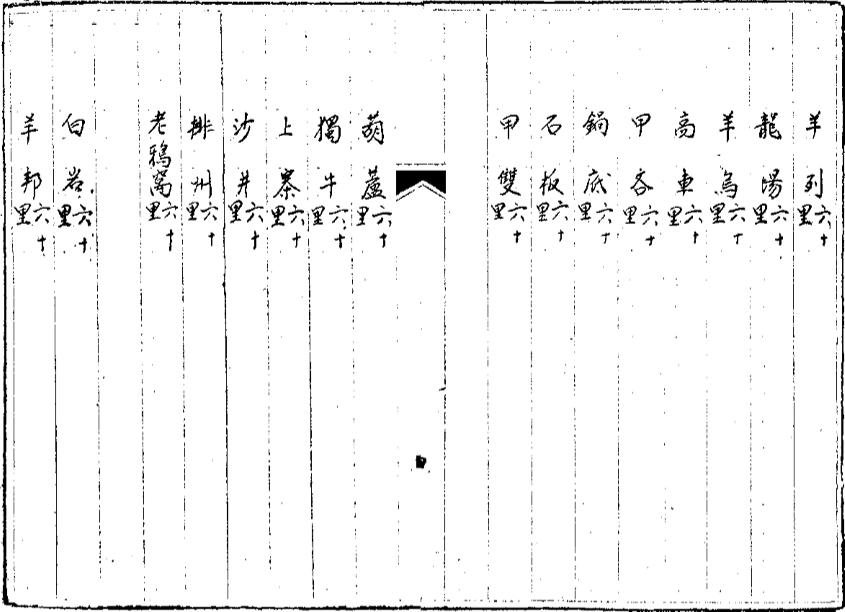 羊列六十里
龍場六十里
羊烏六十里
高車六十里
甲各六十里
鍋底六十里
石板六十里
甲雙六十里
葫蘆六十里
獨牛六十里
上寨六十里
沙井六十里
排州六十里
老鴉窩六十里
白岩六十里
羊邦六十里